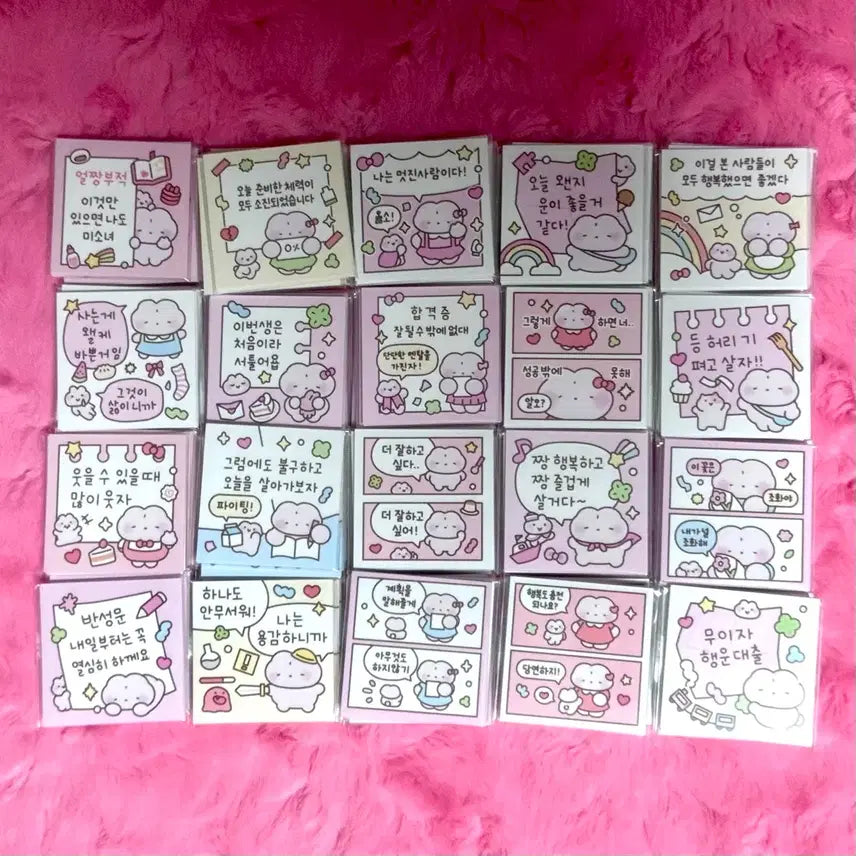 얼짱부적
이것만
있으면 나도
미소녀
오늘 준비한 체력이
모두 소진되었습니다
OX
나는 멋진사람이다!
옳소!
오늘 왠지
운이 좋을거
같다!
이걸 본 사람들이
모두 행복했으면 좋겠다
사는게
왤케
바쁜거임
그것이
삶이니까
이번생은
처음이라
서툴어욥
합격증
잘될수밖에없대
단단한 멘탈을
가진자!
그렇게
하면 너..
성공밖에
못해
알오?
등 허리 기
펴고 살자!!
웃을 수 있을때
많이 웃자
그럼에도 불구하고
오늘을 살아가보자
파이팅!
더 잘하고
싶다..
더 잘하고
싶어!
짱 행복하고
짱 즐겁게
살거다~
이 꽃은
조화야
내가 널
조화해
반성문
내일부터는 꼭
열심히 하게요
하나도
안무서워!
나는
용감하니까
계획을
말해줄게
아무것도
하지않기
행복도 충전
되나요?
당연하지!
무이자
행운대출